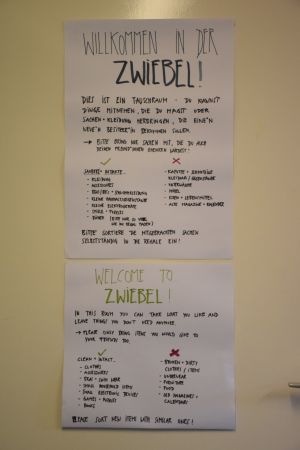 WILLKOMMEN IN DER
ZWIEBEL!
DIES IST EIN TAUSCHRAUM - DU KANNST
DINGE MITNEHMEN, DIE DU MAGST ODER
SACHEN + KLEIDUNG HERBRINGEN, DIE EINE*N
NEUE*N BESITZER*IN BEKOMMEN SOLLEN.
→ BITTE BRING NUR SACHEN MIT, DIE DU AUCH
DEINEN FREUND*INNEN SCHENKEN WÜRDEST!
✓
SAUBERE + INTAKTE...
- KLEIDUNG
- ACCESSOIRES
- KLEINE HAUSHALTSGEGENSTÄNDE
- KLEINE ELEKTROGERÄTE
- SPIELE + PUZZLES
✗
- KAPUTTE + SCHMUTZIGE
KLEIDUNG / GEGENSTÄNDE
- UNTERWÄSCHE
- MÖBEL
- ESSEN + LEBENSMITTEL
- ALTE MAGAZINE + KALENDER
BITTE SORTIERE DIE MITGEBRACHTEN SACHEN
SELBSTSTÄNDIG IN DIE REGALE EIN!
WELCOME TO
ZWIEBEL!
IN THIS ROOM YOU CAN TAKE WHAT YOU LIKE AND
LEAVE THINGS YOU DON'T NEED ANYMORE.
→ PLEASE ONLY BRING ITEMS YOU WOULD GIVE TO
YOUR FRIENDS TOO.
✓
CLEAN + INTACT...
- CLOTHES
- ACCESSOIRES
- SMALL HOUSEHOLD ITEMS
- SMALL ELECTRONIC DEVICES
- GAMES + PUZZLES
- BOOKS
✗
- BROKEN + DIRTY
CLOTHES / ITEMS
- UNDERWEAR
- FURNITURE
- FOOD
- OLD MAGAZINES +
CALENDARS
PLEASE SORT NEW ITEMS WITH SIMILAR ONES!